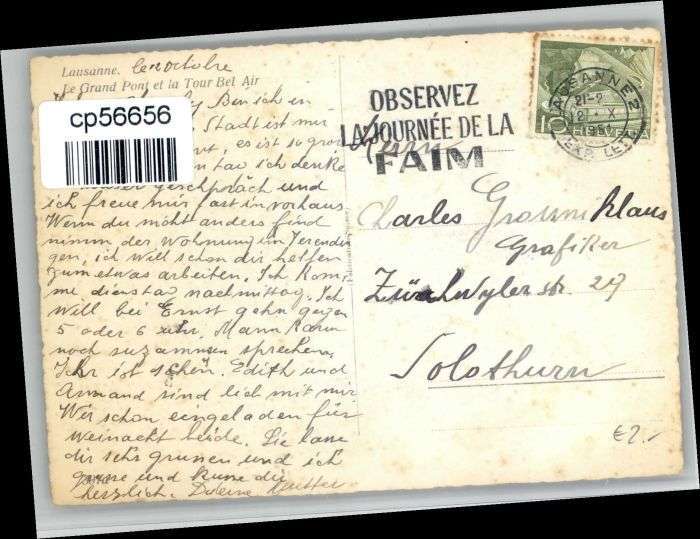 Lausanne. le octobre
Le Grand Pont et la Tour Bel Air
Bin ich in
cp56656
Stadt ist mir
es ist so gros
ich denke
geschpräch und
ich freue mir fast in vorhaus
Wenn du nicht anders find
nimm der wohnung im
gen, ich will schon dir helfen
zum etwas arbeiten. Ich kom
me dienstav nachmittag. Ich
will bei Ernst gehn gegen
5 oder 6 uhr. Mann kann
noch suzammen sprechen,
Ihr ist schön. Edith und
Armand sind lich mit mir
Wir schon eingeladen für
weinacht beide. Sie lasse
dir sehr grussen und ich
grüsse und kusse dir
herzlich. Deine Mutter
OBSERVEZ
LA JOURNÉE DE LA
FAIM
LAUSANNE 2
21-2
12. X
1951
EXP. LET.
10
Herrn
Charles Grossniklaus
Grafiker
Zuchwylerstr. 29
Solothurn
€2.-